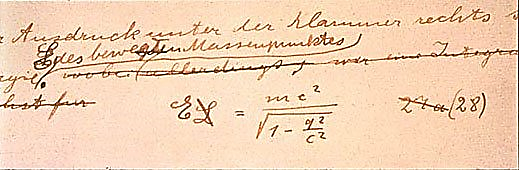 Ausdruck unter der Klammer rechts
E des bewegten Massenpunktes
gie. wobei (allerdings,
für
E L = mc²/√(1 - q²/c²) 27a (28)